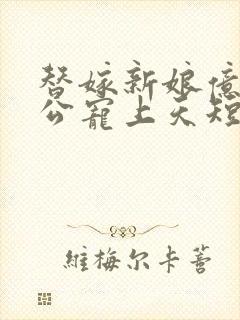 替嫁新娘億
公寵上天短
維梅尔卡薔